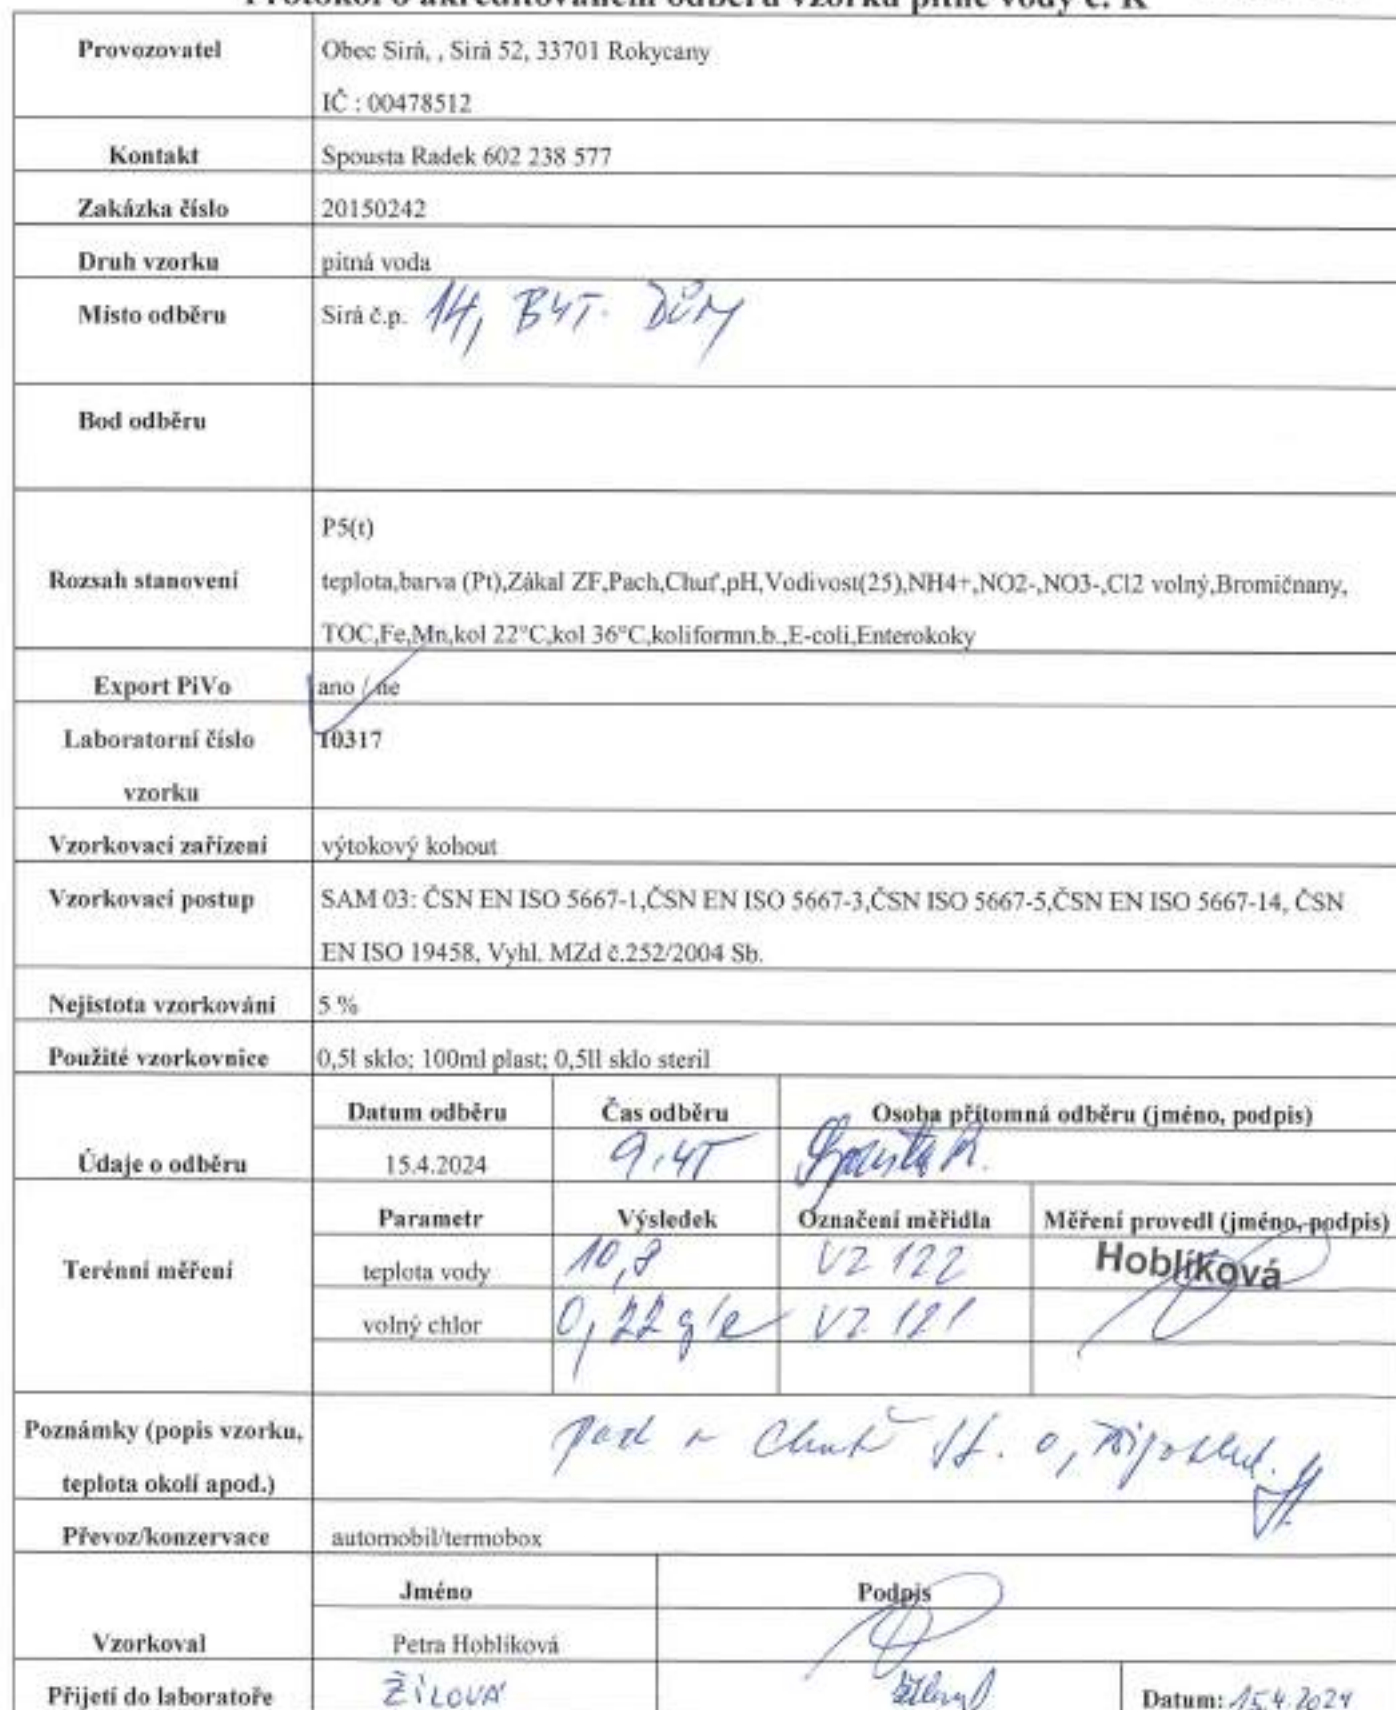 Protokol o akreditovaném odběru vzorku pitné vody č. K
Provozovatel
Obec Sirá, , Sirá 52, 33701 Rokycany
IČ : 00478512
Kontakt
Spousta Radek 602 238 577
Zakázka číslo
20150242
Druh vzorku
pitná voda
Místo odběru
Sirá č.p. 14, BYT. DŮM
Bod odběru
P5(t)
Rozsah stanovení
teplota,barva (Pt),Zákal ZF,Pach,Chuť,pH,Vodivost(25),NH4+,NO2-,NO3-,Cl2 volný,Bromičnany,
TOC,Fe,Mn,kol 22°C,kol 36°C,koliformn.b.,E-coli,Enterokoky
Export PiVo
ano / ne
Laboratorní číslo
vzorku
10317
Vzorkovací zařízení
výtokový kohout
Vzorkovací postup
SAM 03: ČSN EN ISO 5667-1,ČSN EN ISO 5667-3,ČSN ISO 5667-5,ČSN EN ISO 5667-14, ČSN
EN ISO 19458, Vyhl. MZd č.252/2004 Sb.
Nejistota vzorkování
5 %
Použité vzorkovnice
0,5l sklo; 100ml plast; 0,5ll sklo steril
Údaje o odběru
Datum odběru Čas odběru Osoba přítomná odběru (jméno, podpis)
15.4.2024 9,45 Spousta R.
Terénní měření
Parametr Výsledek Označení měřidla Měření provedl (jméno, podpis)
teplota vody 10,8 VZ 122 Hoblíková
volný chlor 0,22 VZ 121
Poznámky (popis vzorku,
teplota okolí apod.)
Převoz/konzervace
automobil/termobox
Jméno Podpis
Vzorkoval
Petra Hoblíková
Přijetí do laboratoře
ŽÍLOVÁ
Datum: 15.4.2024